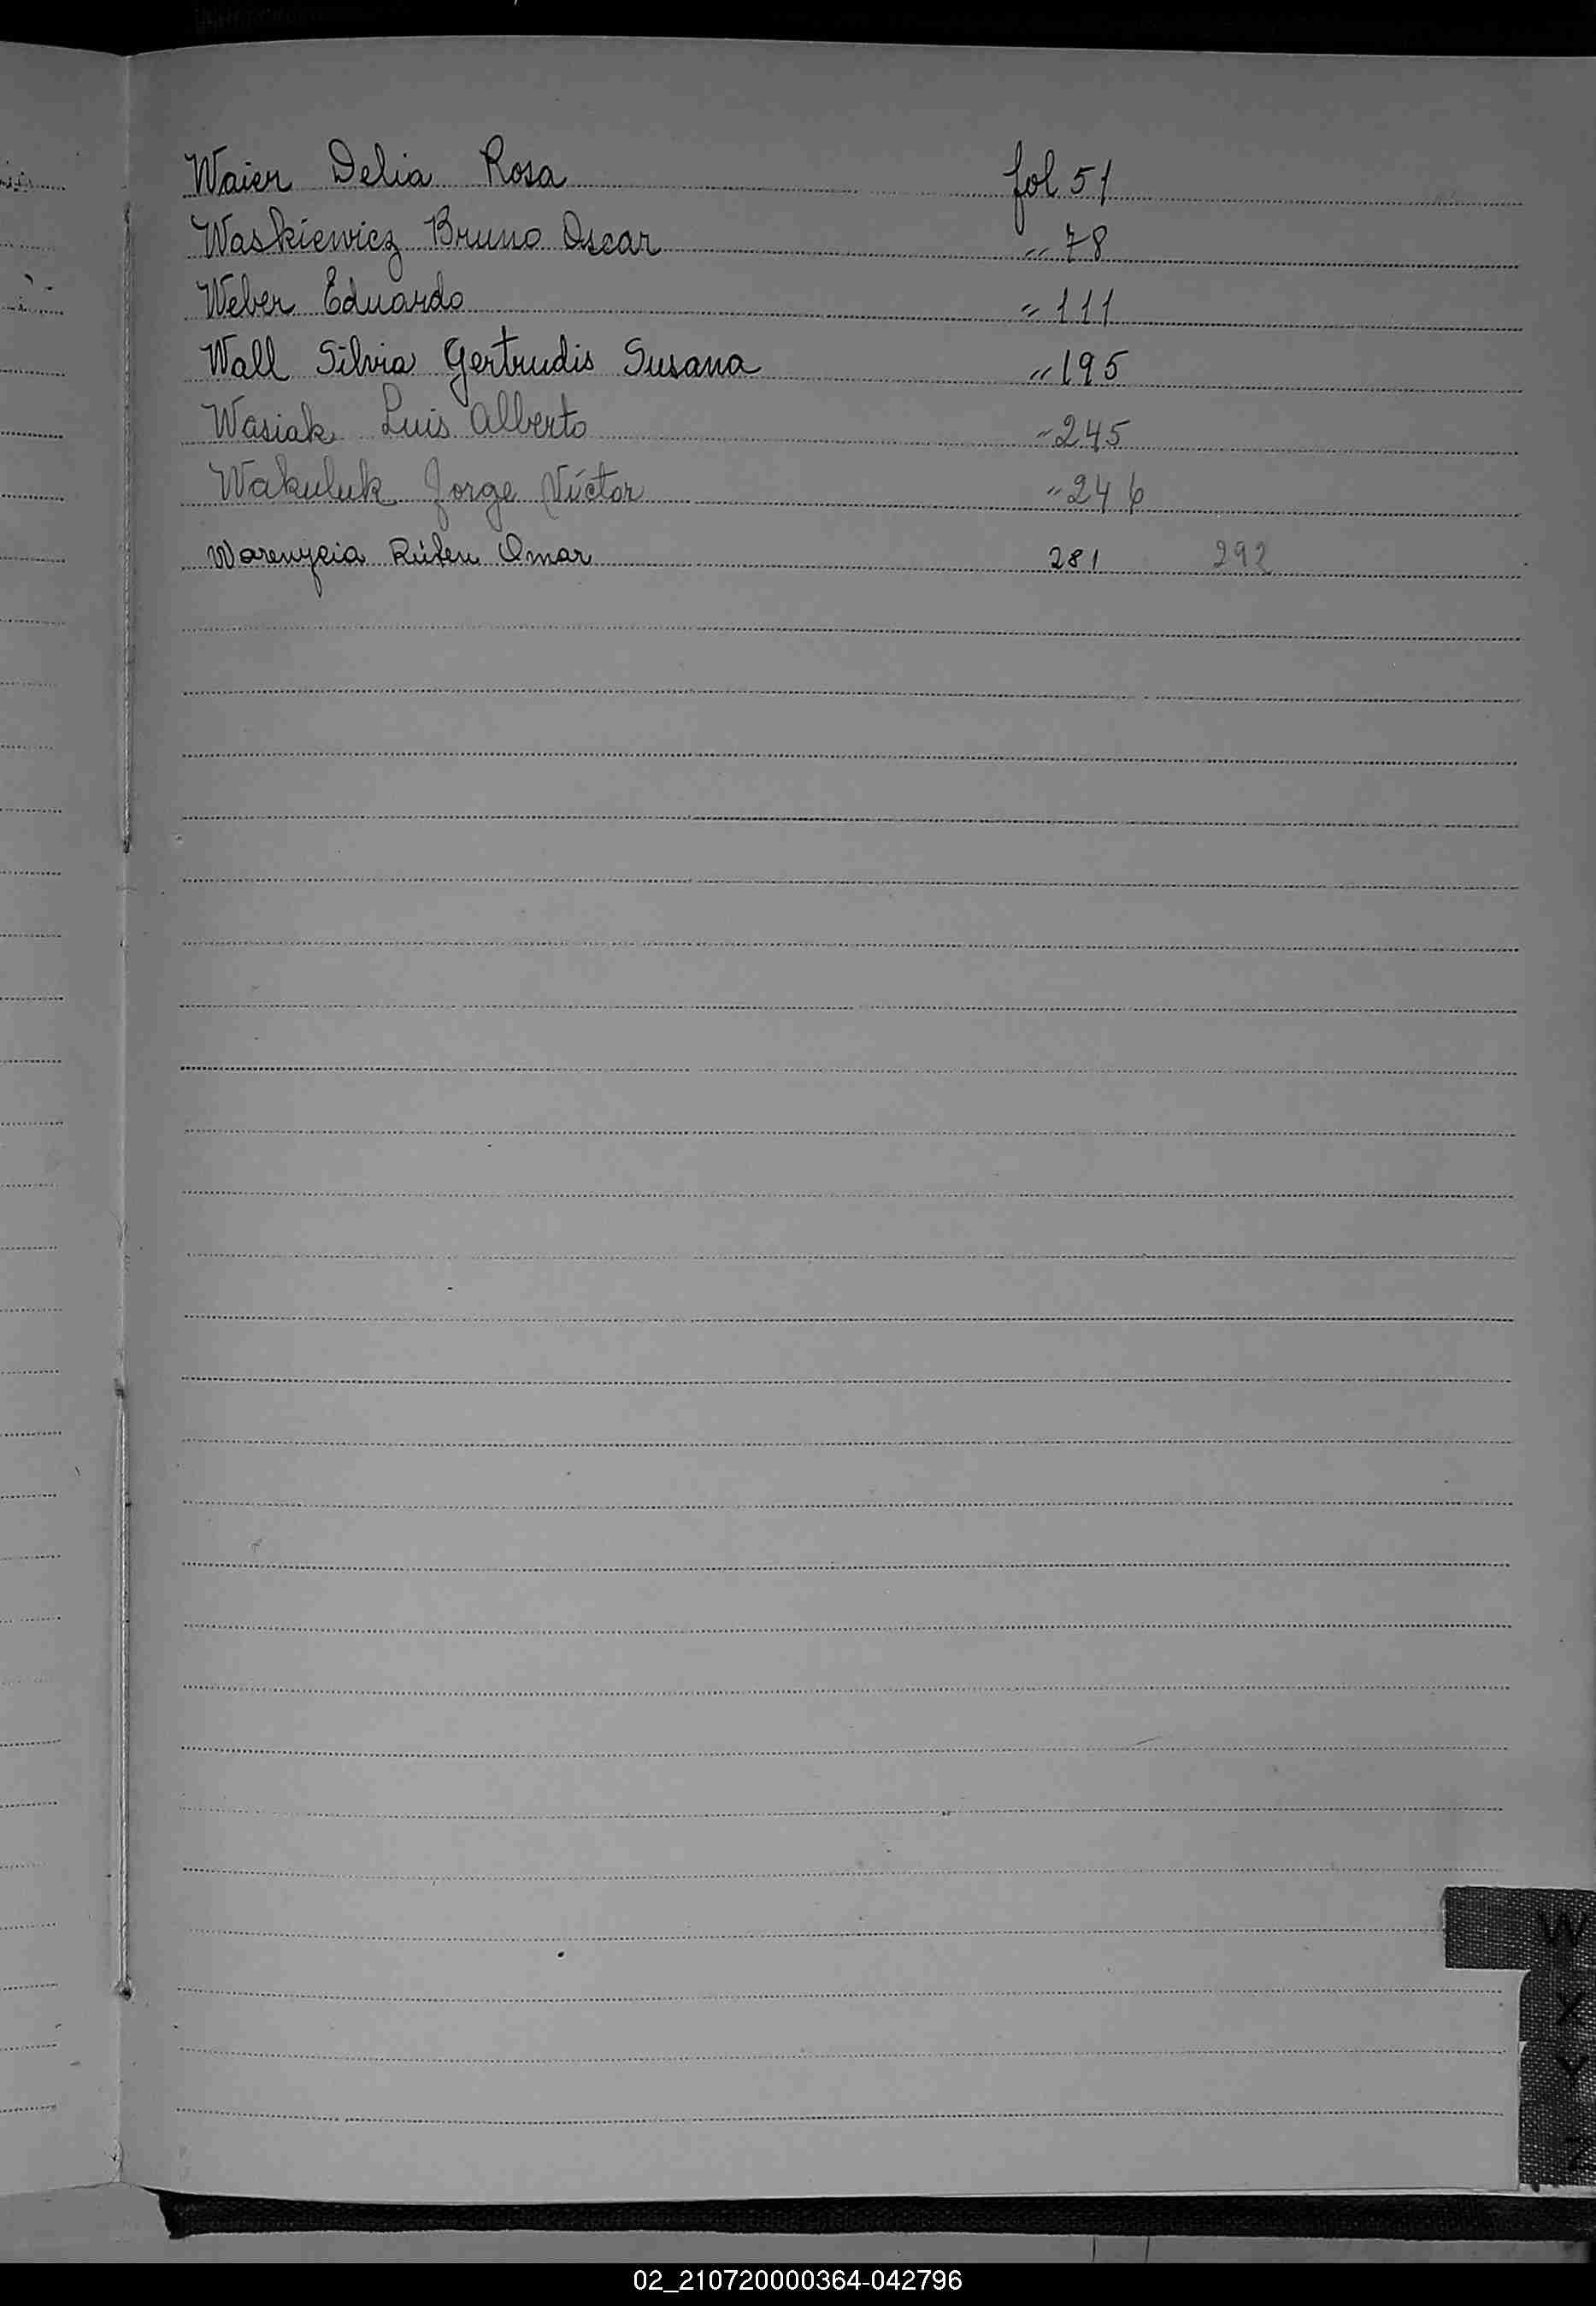 Waier Delia Rosa fol 51
Waskiewicz Bruno Oscar " 78
Weber Eduardo " 111
Wall Silvia Gertrudis Susana " 195
Wasiak Luis Alberto " 245
Wakuluk Jorge Víctor " 246
Warenycia Rúben Omar 281 292
W
X
Y
Z
02_210720000364-042796